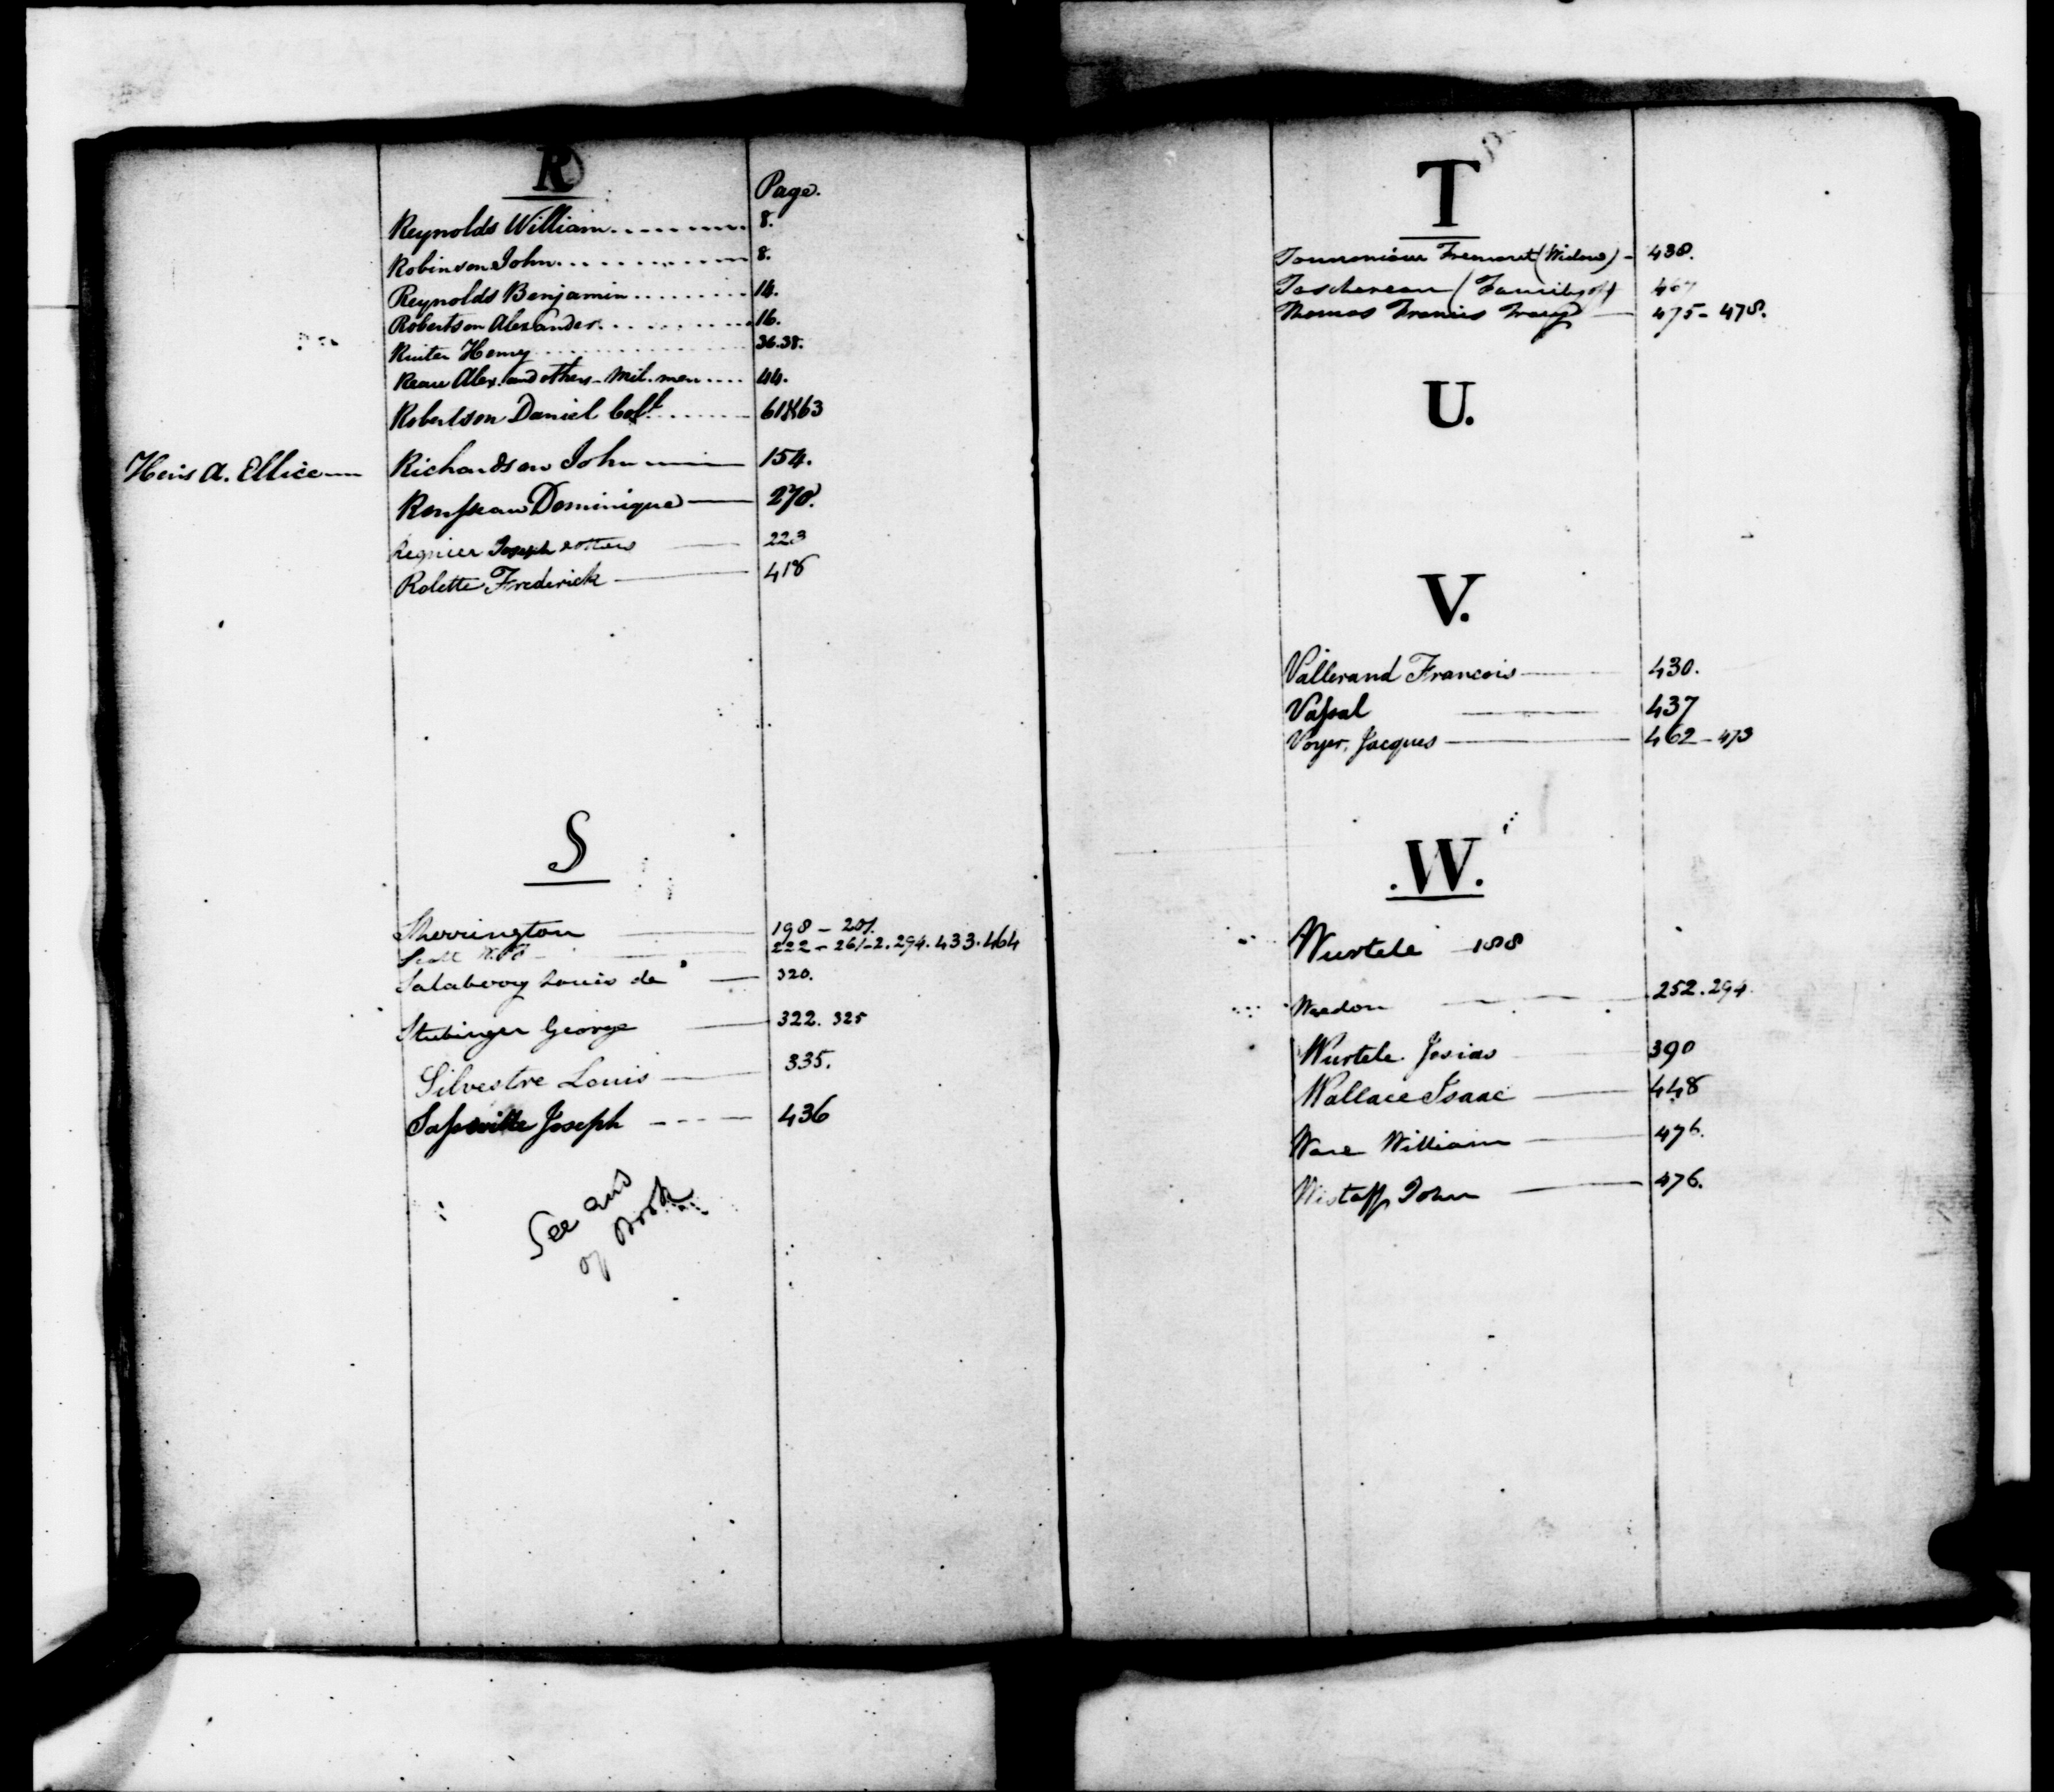 R
Page.
Reynolds William........ 8.
Robinson John........... 8.
Reynolds Benjamin......... 14.
Robertson Alexander........... 16.
Ruiter Henry............. 36.38.
Reau Alex. and others - Mil. men.... 44.
Robertson Daniel Colº....... 61&63
Heirs A. Ellice — Richardson John — 154.
Rousseau Dominique — 270.
Regnier Joseph & others — 223
Rolette Frederick — 418
S
Sherrington — 198 - 201.
Scott — 222 - 261-2. 294. 433. 464
Salaberry Louis de — 320.
Stubinger George — 322. 325
Silvestre Louis — 335.
Sasseville Joseph - - - — 436
See end
of Book
T
(Widow) - 438.
Taschereau (Family of) 467
Thomas Francis — 475 - 478.
U.
V.
Vallerand Francois — 430.
Vassal — 437
Voyer, Jacques — 462 - 473
.W.
Wurtele — 188
Weedon — 252. 294.
Wurtele Josias 390
Wallace Isaac — 448
Ware William — 476.
John — 476.